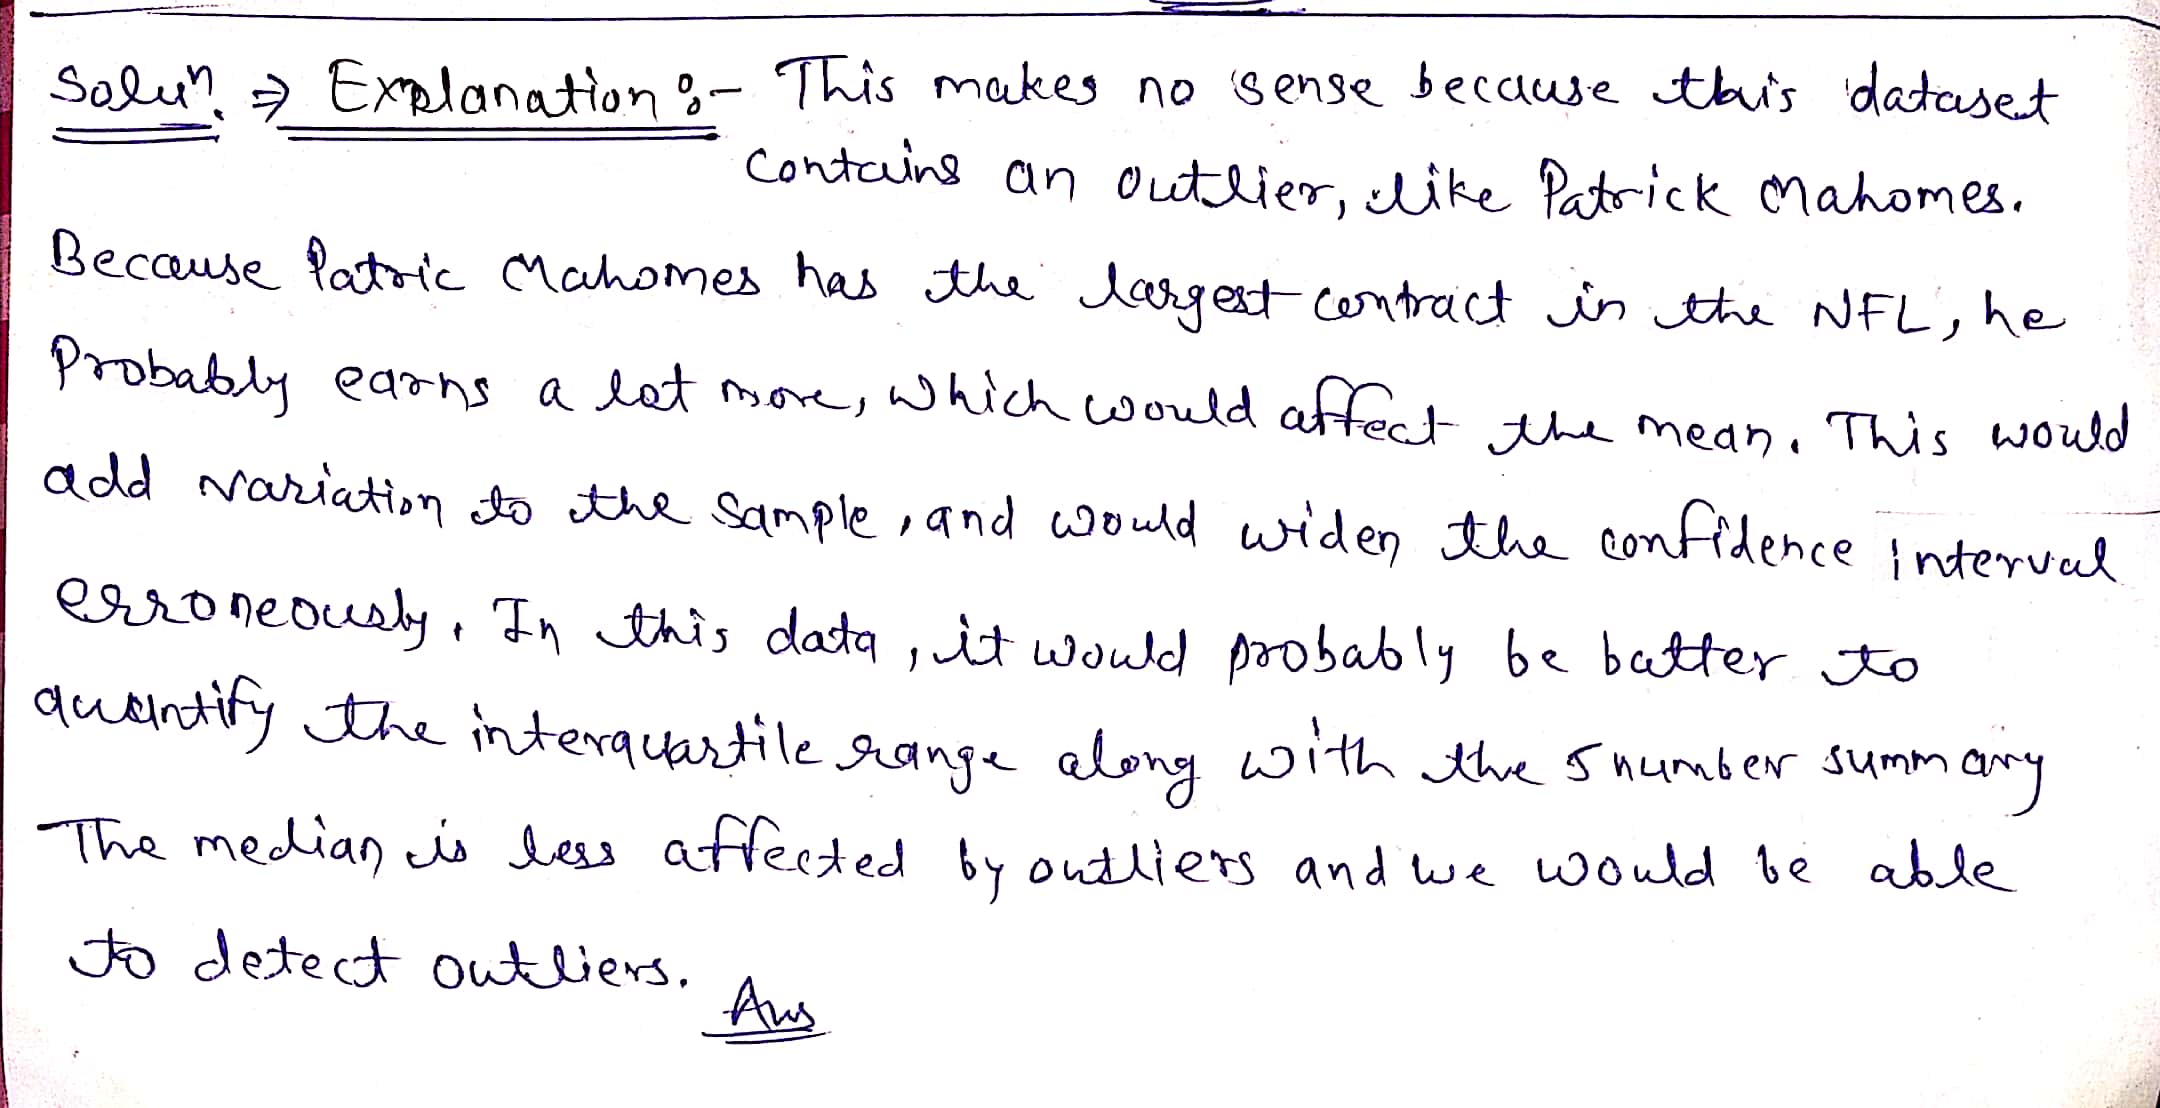 Solun. ⇒ Explanation :- This makes no sense because this dataset
contains an outlier, like Patrick Mahomes.
Because Patric Mahomes has the largest contract in the NFL, he
Probably earns a lot more, which would affect the mean. This would
add variation to the sample, and would widen the confidence interval
erroneously. In this data, it would probably be batter to
quantify the interquartile range along with the 5 number summary
The median is less affected by outliers and we would be able
to detect outliers.
Ans